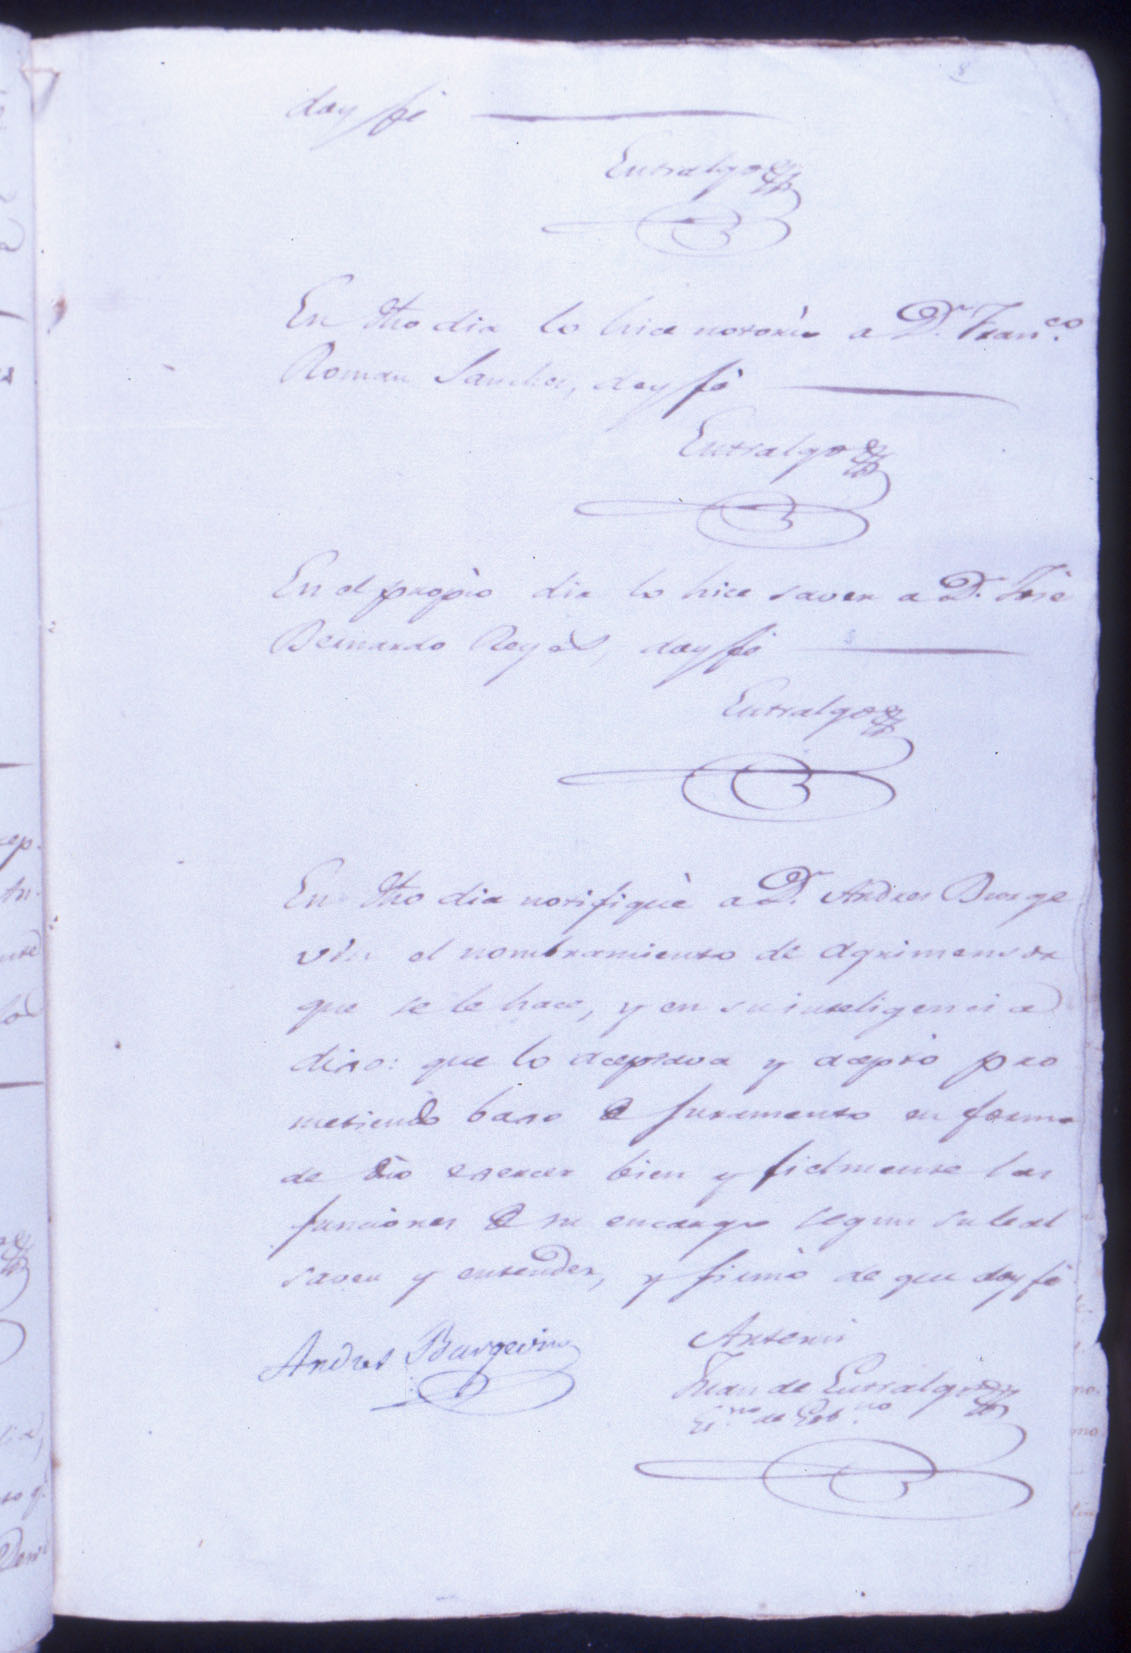 8
doy fé
Entralgo
En dho dia lo hice notorio a Dn. Franco.
Roman Sanchez, doy fé
Entralgo
En el propio dia lo hice saver a Dn. José
Bernardo Reyes, doy fé
Entralgo
En dho dia notifiqué a Dn. Andres Burge
vin el nombramiento de Agrimensor
que se le hace, y en su inteligencia
dixo: que lo aceptava y aceptó pro
metiendo baxo de Juramento en forma
de dro exercer bien y fielmente las
funciones de su encargo segun su leal
saver y entender, y firmó de que doy fé
Andres Burgevin
Antemi
Juan de Entralgo
Es.no de Gob.no